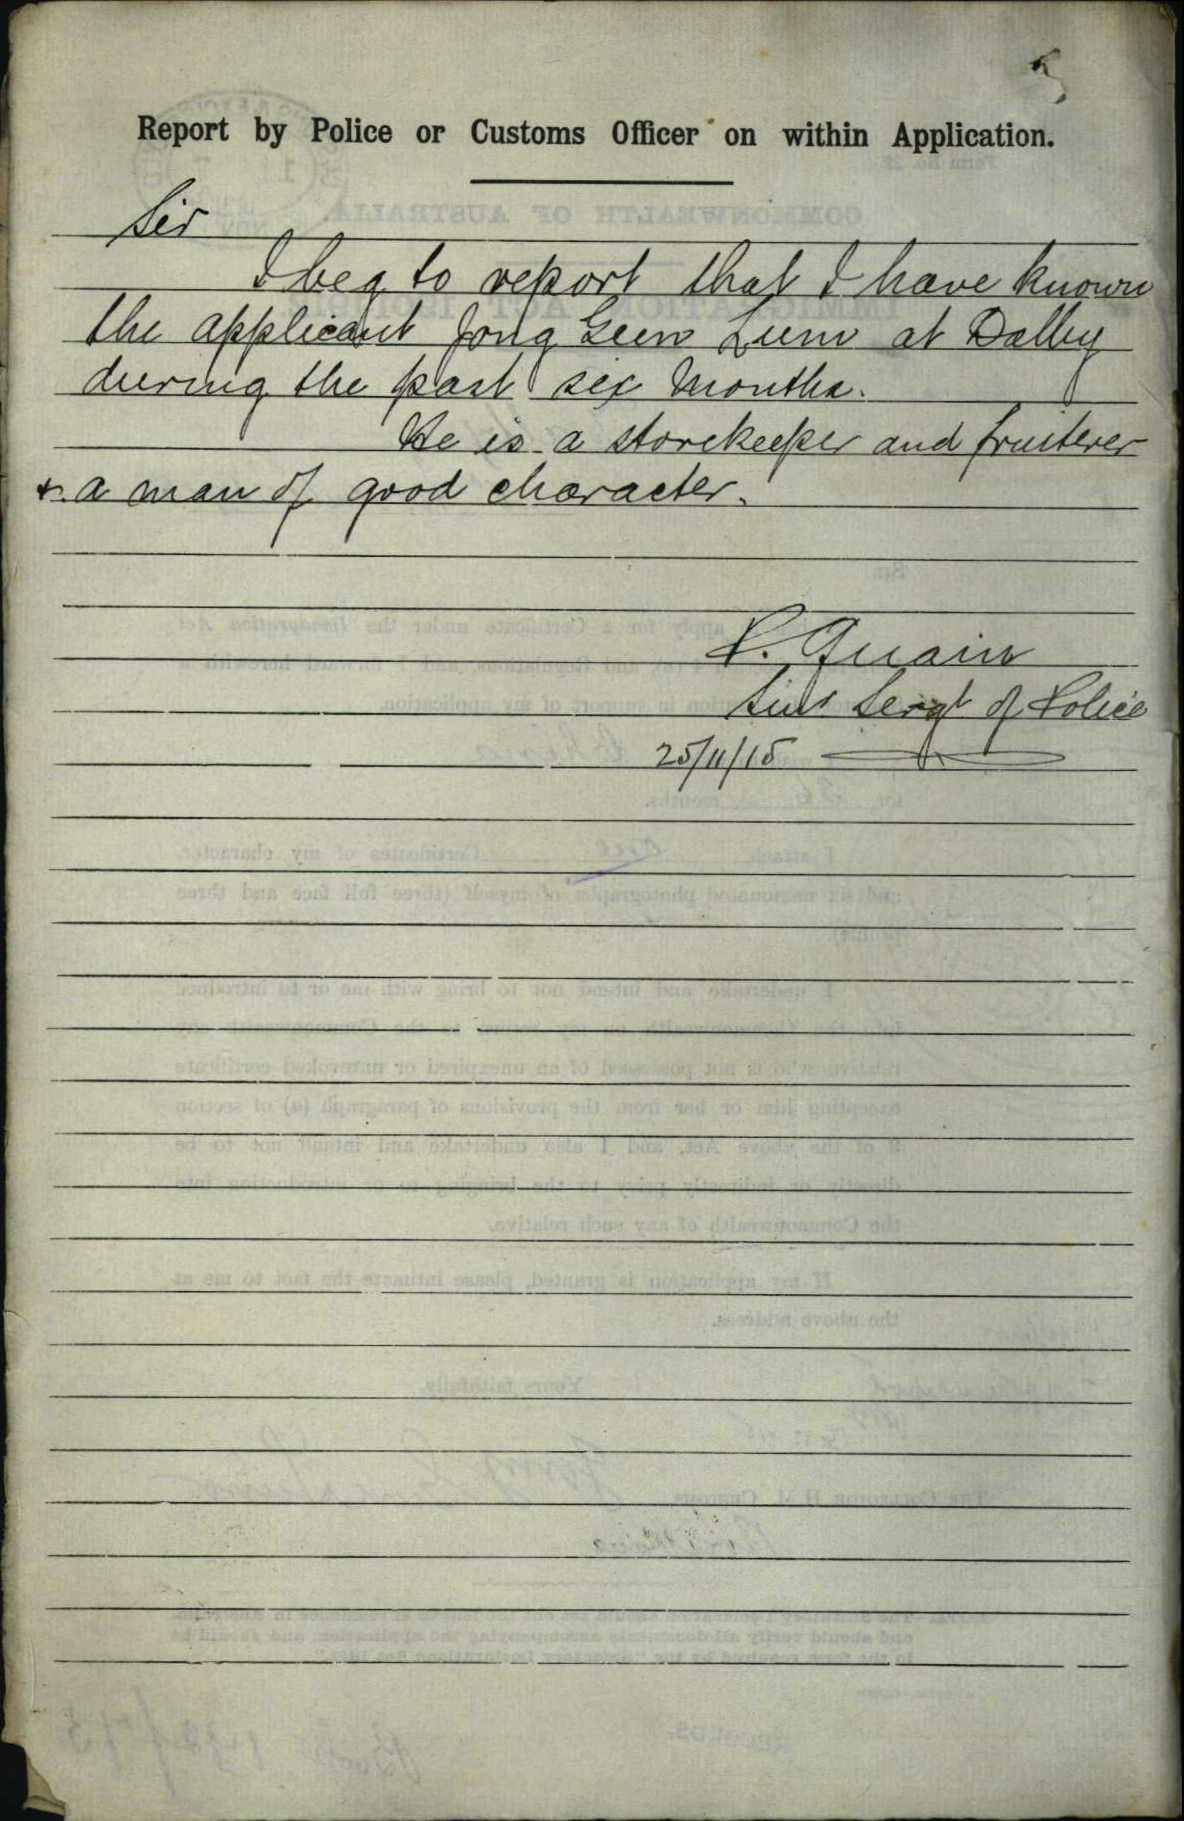 5
Report by Police or Customs Officer on within Application.
Sir
I beg to report that I have known
the applicant Jong Geen Lum at Dalby
during the past six months.
He is a storekeeper and fruiterer
& a man of good character.
P. Quain
Sergt of Police
25/11/15